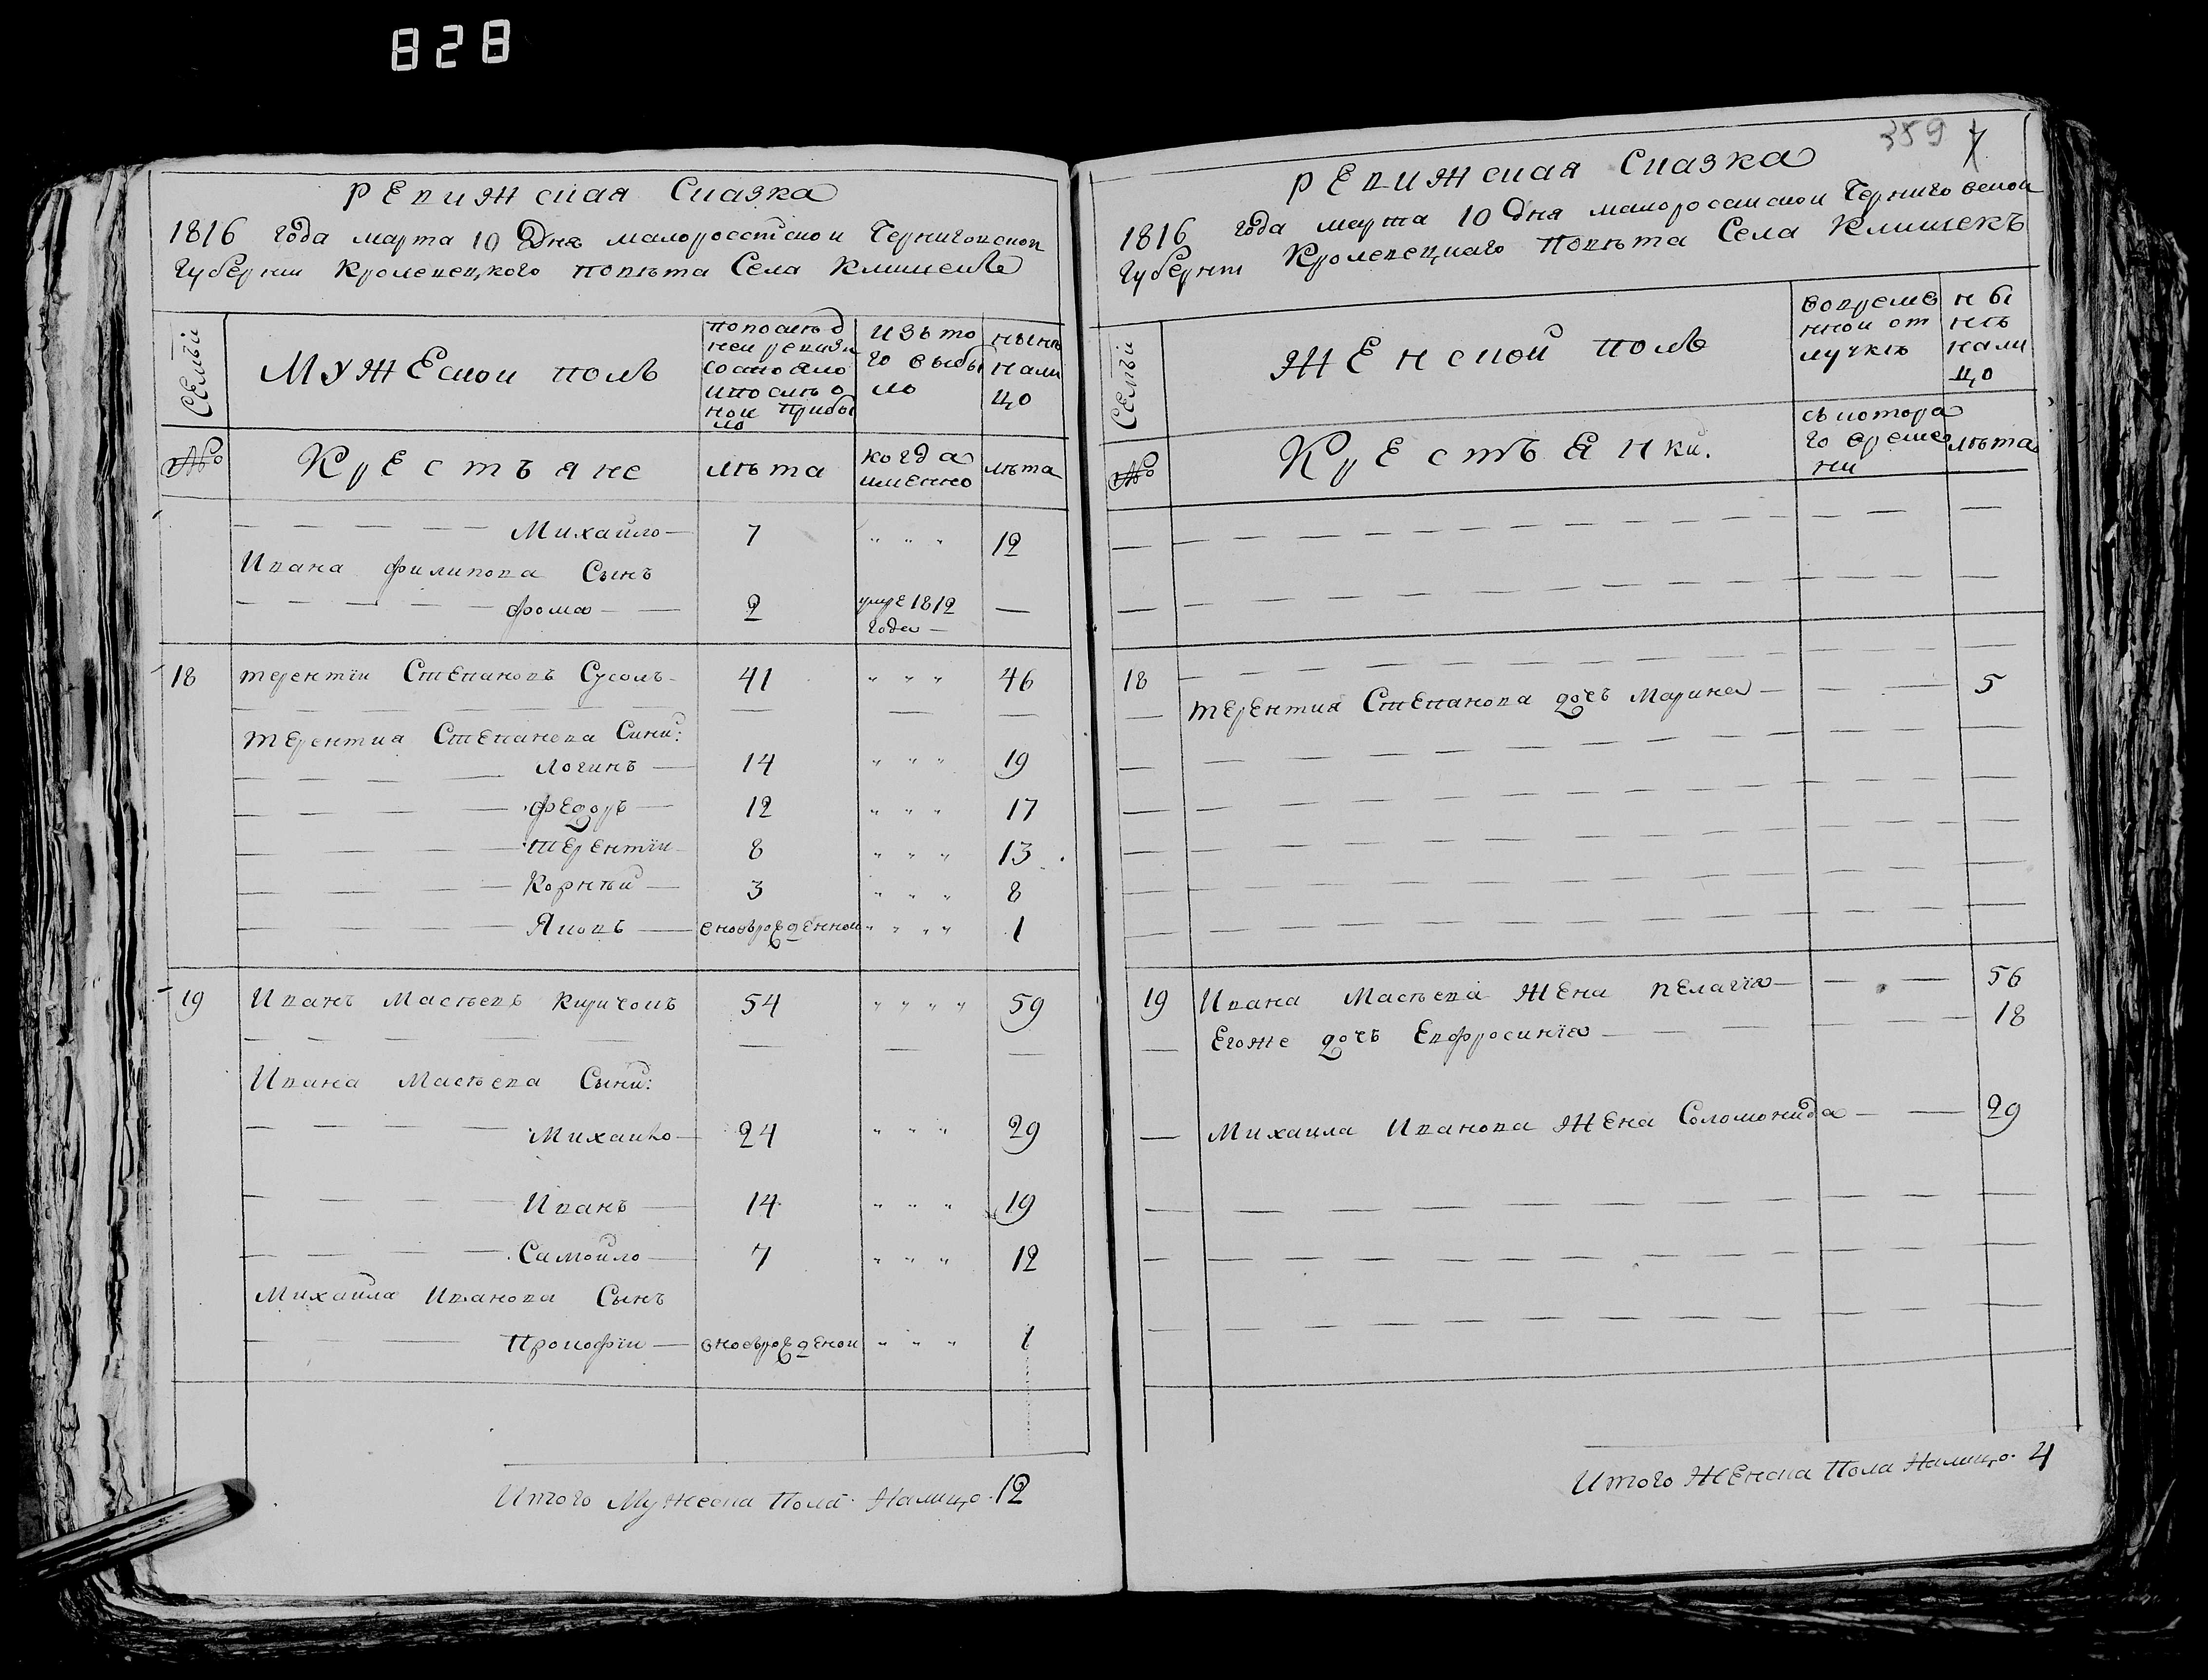 828
РЕвиЖская Сказка
1816 года марта 10 Дня малоросстской Черниговской
Губернии Кролевецкого повѣта Села Клишекъ
СЕмьи
МУЖЕской полъ
попослѣд
ней ревизи
состояло
ипослѣ о
ной прибы
ло
изъ то
го выбы
ло
нынѣ
нали
цо
№
КрЕстьяне
лѣта
когда
имЕнно
лѣта
Михайло 7 " " " 12
Ивана филипова Сынъ
фома 2 умрЕ 1812 —
года
18 терентiи СтЕпановъ Сусолъ 41 " " " 46
тЕрентия СтЕпанова Сини:
Логинъ 14 " " " 19
фЕдоръ 12 " " " 17
тЕрЕнтiи 8 " " " 13
Корнѣй 3 " " " 8
Яковъ вновьроЕдЕнной " " " " 1
19 Иванъ Масѣевъ Киричокъ 54 " " " " 59
Ивана Масѣева Сыни:
Михайло 24 " " " 29
Иванъ 14 " " " 19
Самойло 7 " " " 12
Михаила Иванова Сынъ
Прокофiи вновьроЕдЕной " " " 1
Итого Мужеска Пола Налицо 12
359 7
РЕвиЖская Сказка
1816 года марта 10 Дня малороссиской Черниговской
Губернiи Кролевецкаго повѣта Села Клишекъ
СЕмьи
ЖЕнской полъ
вовремѣ
нной от
лучкѣ
ны
нѣ
нали
цо
№
КрЕстьЯнки.
съ котора
го време
ни
лѣта
18
тЕрЕнтия СтЕпанова дочъ Марина 5
19 Ивана Масѣева ЖЕна пЕлагiя 56
Егоже дочъ Евфросинiя 18
Михаила Иванова ЖЕна Соломонида 29
Итого ЖЕнска Пола Налицо 4